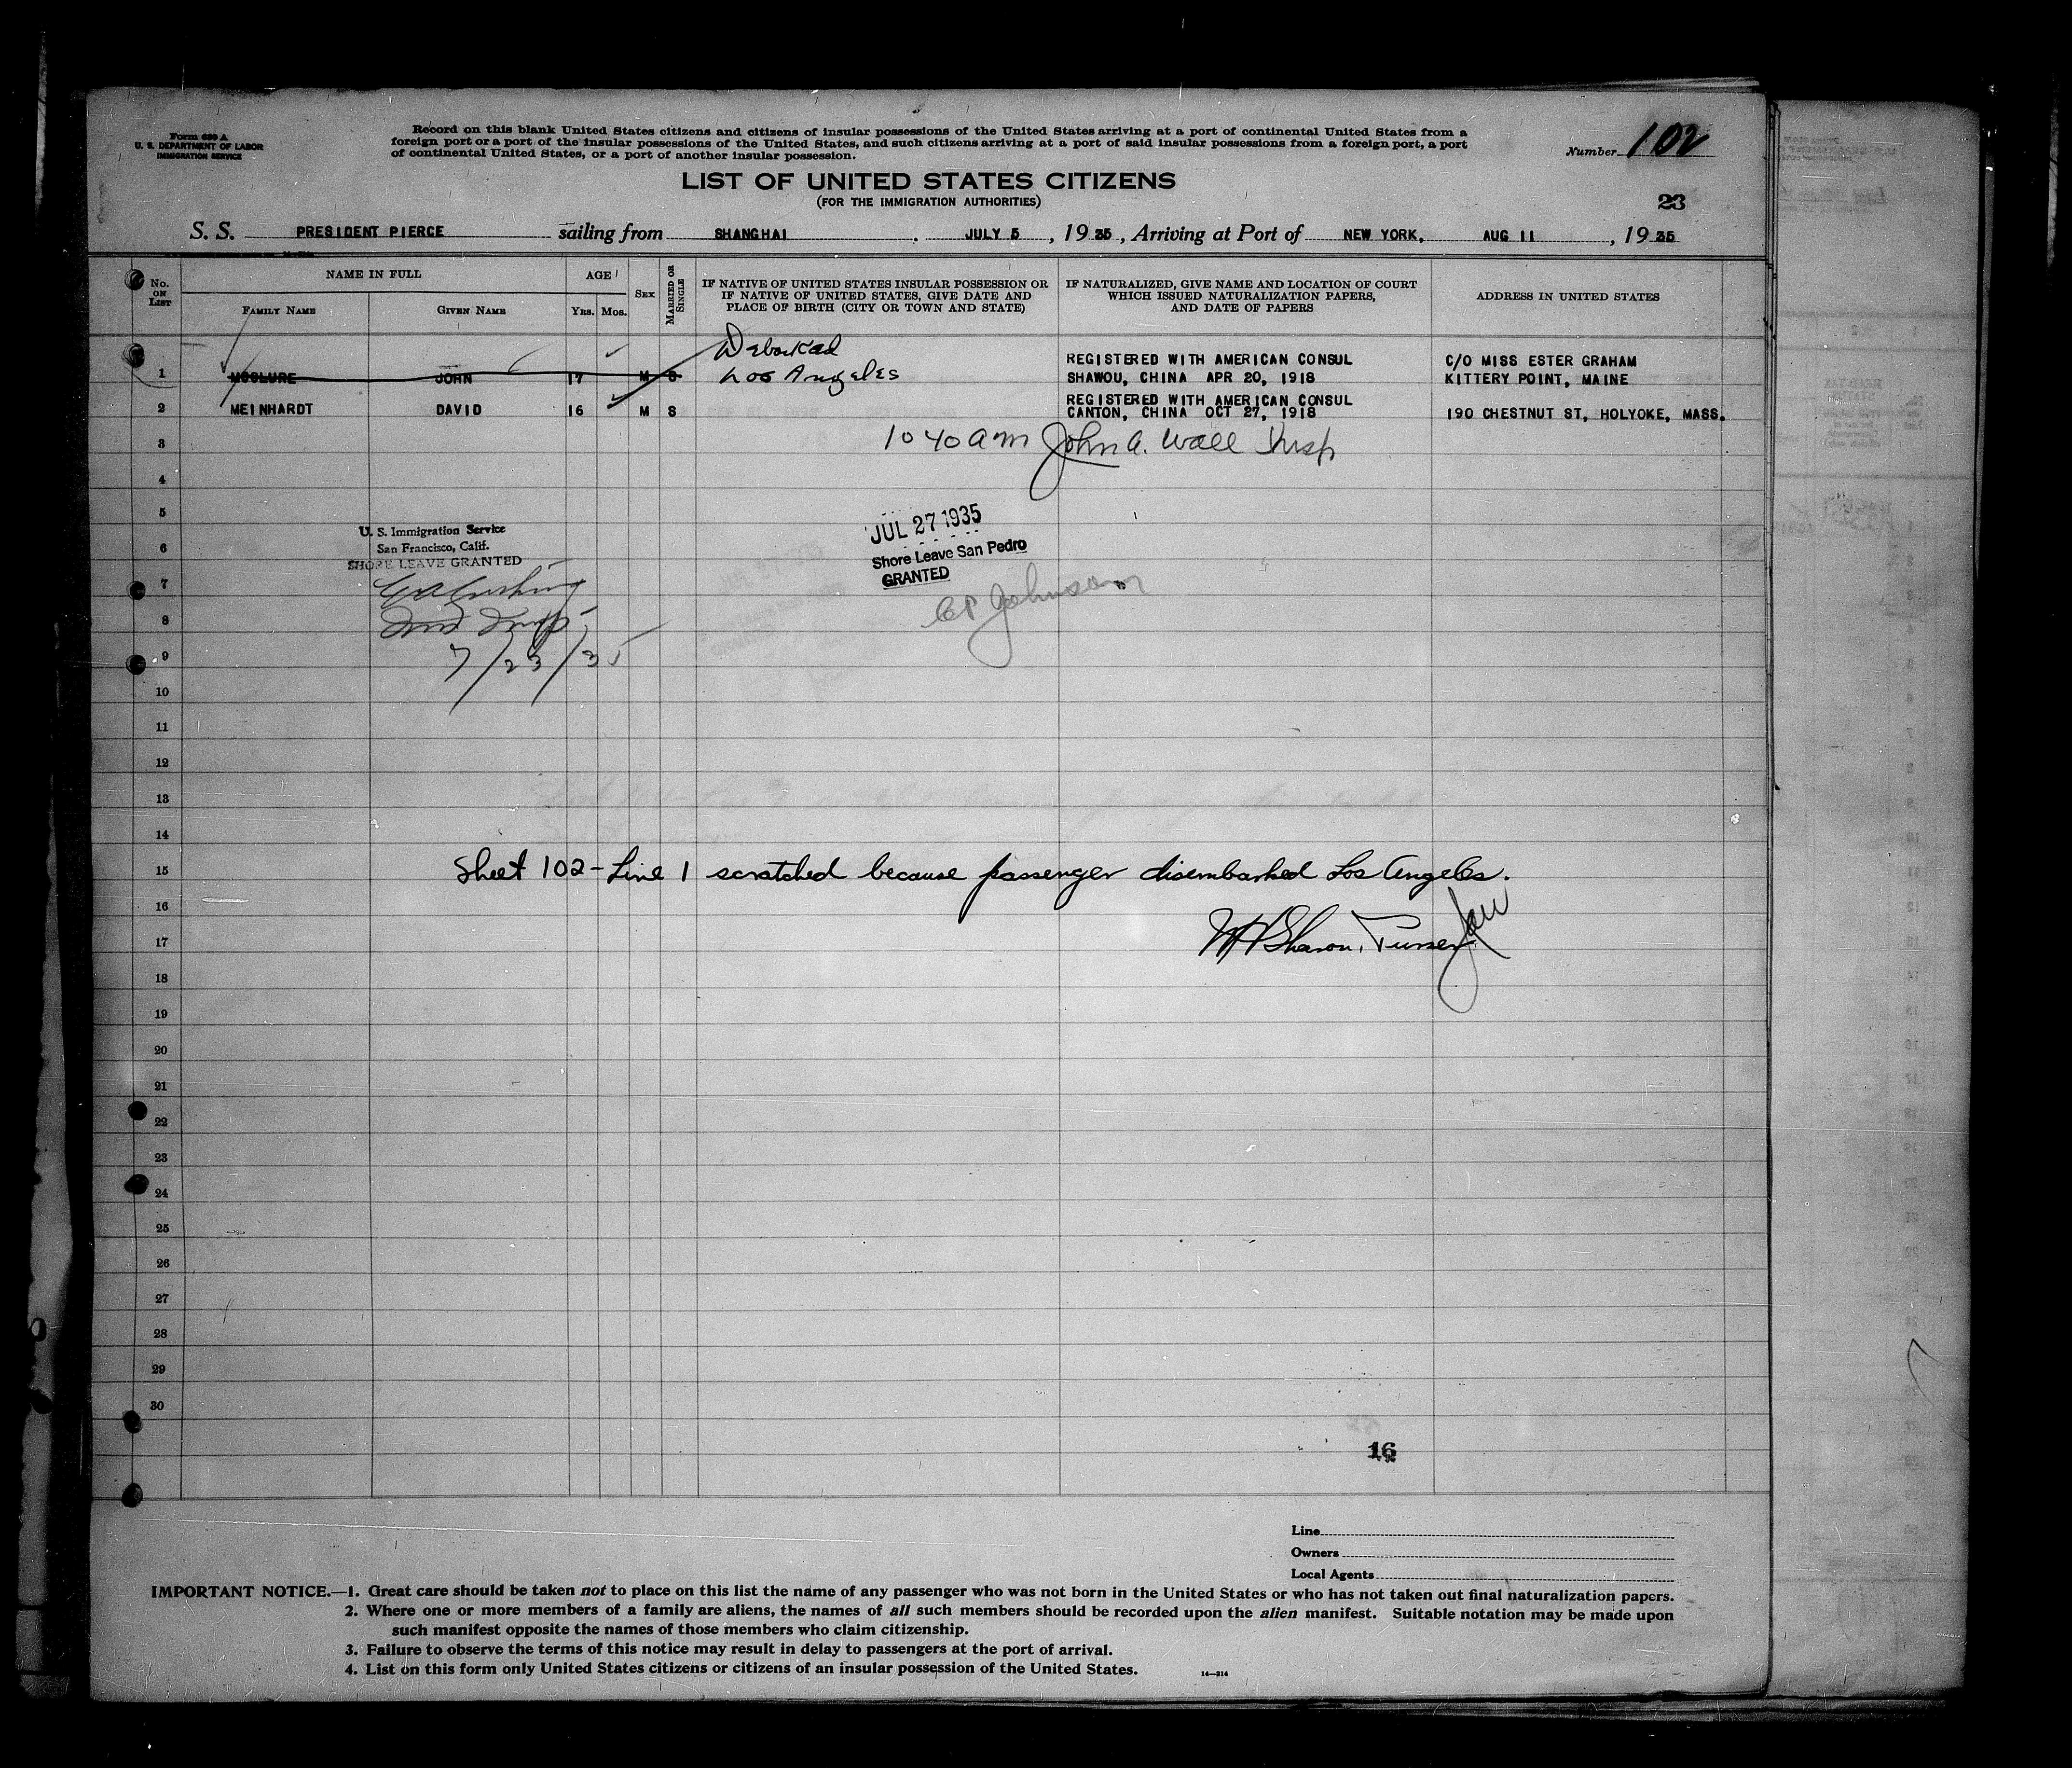 Form 630 A
U. S. DEPARTMENT OF LABOR
IMMIGRATION SERVICE
Record on this blank United States citizens and citizens of insular possessions of the United States arriving at a port of continental United States from a
foreign port or a port of the insular possessions of the United States, and such citizens arriving at a port of said insular possessions from a foreign port, a port
of continental United States, or a port of another insular possession.
Number 102
LIST OF UNITED STATES CITIZENS
(FOR THE IMMIGRATION AUTHORITIES)
23
S. S. PRESIDENT PIERCE sailing from SHANGHAI, JULY 5, 1935, Arriving at Port of NEW YORK, AUG 11, 1935
No. ON LIST
NAME IN FULL
FAMILY NAME
GIVEN NAME
AGE
YRS. MOS.
SEX
MARRIED OR SINGLE
IF NATIVE OF UNITED STATES INSULAR POSSESSION OR
IF NATIVE OF UNITED STATES, GIVE DATE AND
PLACE OF BIRTH (CITY OR TOWN AND STATE)
IF NATURALIZED, GIVE NAME AND LOCATION OF COURT
WHICH ISSUED NATURALIZATION PAPERS,
AND DATE OF PAPERS
ADDRESS IN UNITED STATES
Debarked
Los Angeles
1 MCCLURE JOHN 17 M S
REGISTERED WITH AMERICAN CONSUL
SHAWOU, CHINA APR 20, 1918
C/O MISS ESTER GRAHAM
KITTERY POINT, MAINE
2 MEINHARDT DAVID 16 M S
REGISTERED WITH AMERICAN CONSUL
CANTON, CHINA OCT 27, 1918
190 CHESTNUT ST, HOLYOKE, MASS.
3
10 40 am John A. Wall Insp
4
5
JUL 27 1935
Shore Leave San Pedro
GRANTED
CP Johnson
U. S. Immigration Service
San Francisco, Calif.
SHORE LEAVE GRANTED
6
7
8
7/23/35
9
10
11
12
13
14
15
Sheet 102 - Line 1 scratched because passenger disembarked Los Angeles.
16
17
Purser
18
19
20
21
22
23
24
25
26
27
28
29
30
16
Line
Owners
Local Agents
IMPORTANT NOTICE.—1. Great care should be taken not to place on this list the name of any passenger who was not born in the United States or who has not taken out final naturalization papers.
2. Where one or more members of a family are aliens, the names of all such members should be recorded upon the alien manifest. Suitable notation may be made upon
such manifest opposite the names of those members who claim citizenship.
3. Failure to observe the terms of this notice may result in delay to passengers at the port of arrival.
4. List on this form only United States citizens or citizens of an insular possession of the United States.
14—214